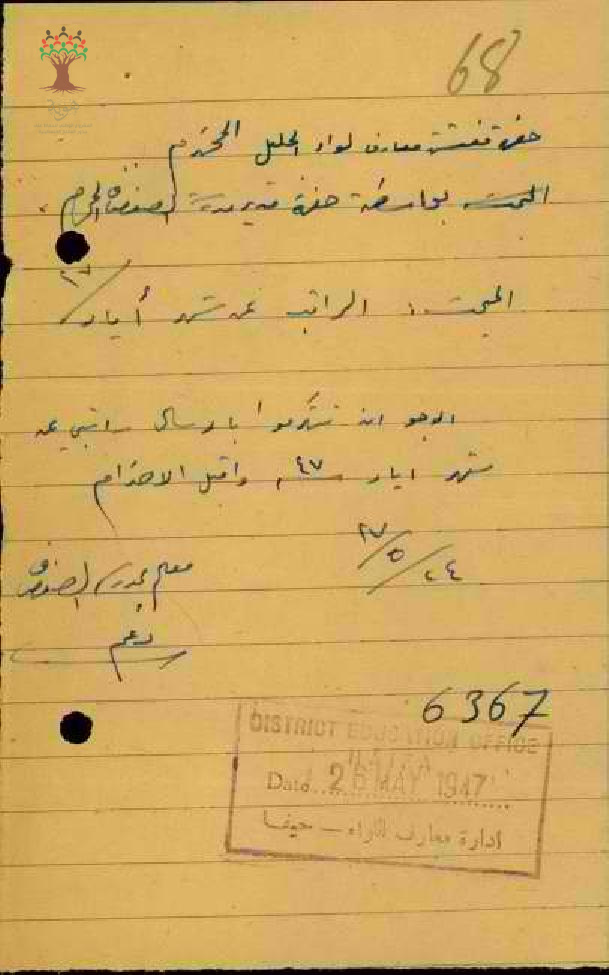 68
حضرة مفتش معارف لواء الجليل المحترم
بواسطة حضرة مدير مدرسة الصفصاف المحترم
المبحث: الراتب عن شهر أيار / ٤٧
ارجو ان تتكرموا بارسال راتبي عن
شهر ايار سنة ٤٧ واقبل الاحترام
٢٤ / ٥ / ٤٧
معلم بمدرسة الصفصاف
6367
DISTRICT EDUCATION OFFICE
HAIFA
Date 26 MAY 1947
ادارة معارف اللواء – حيفا